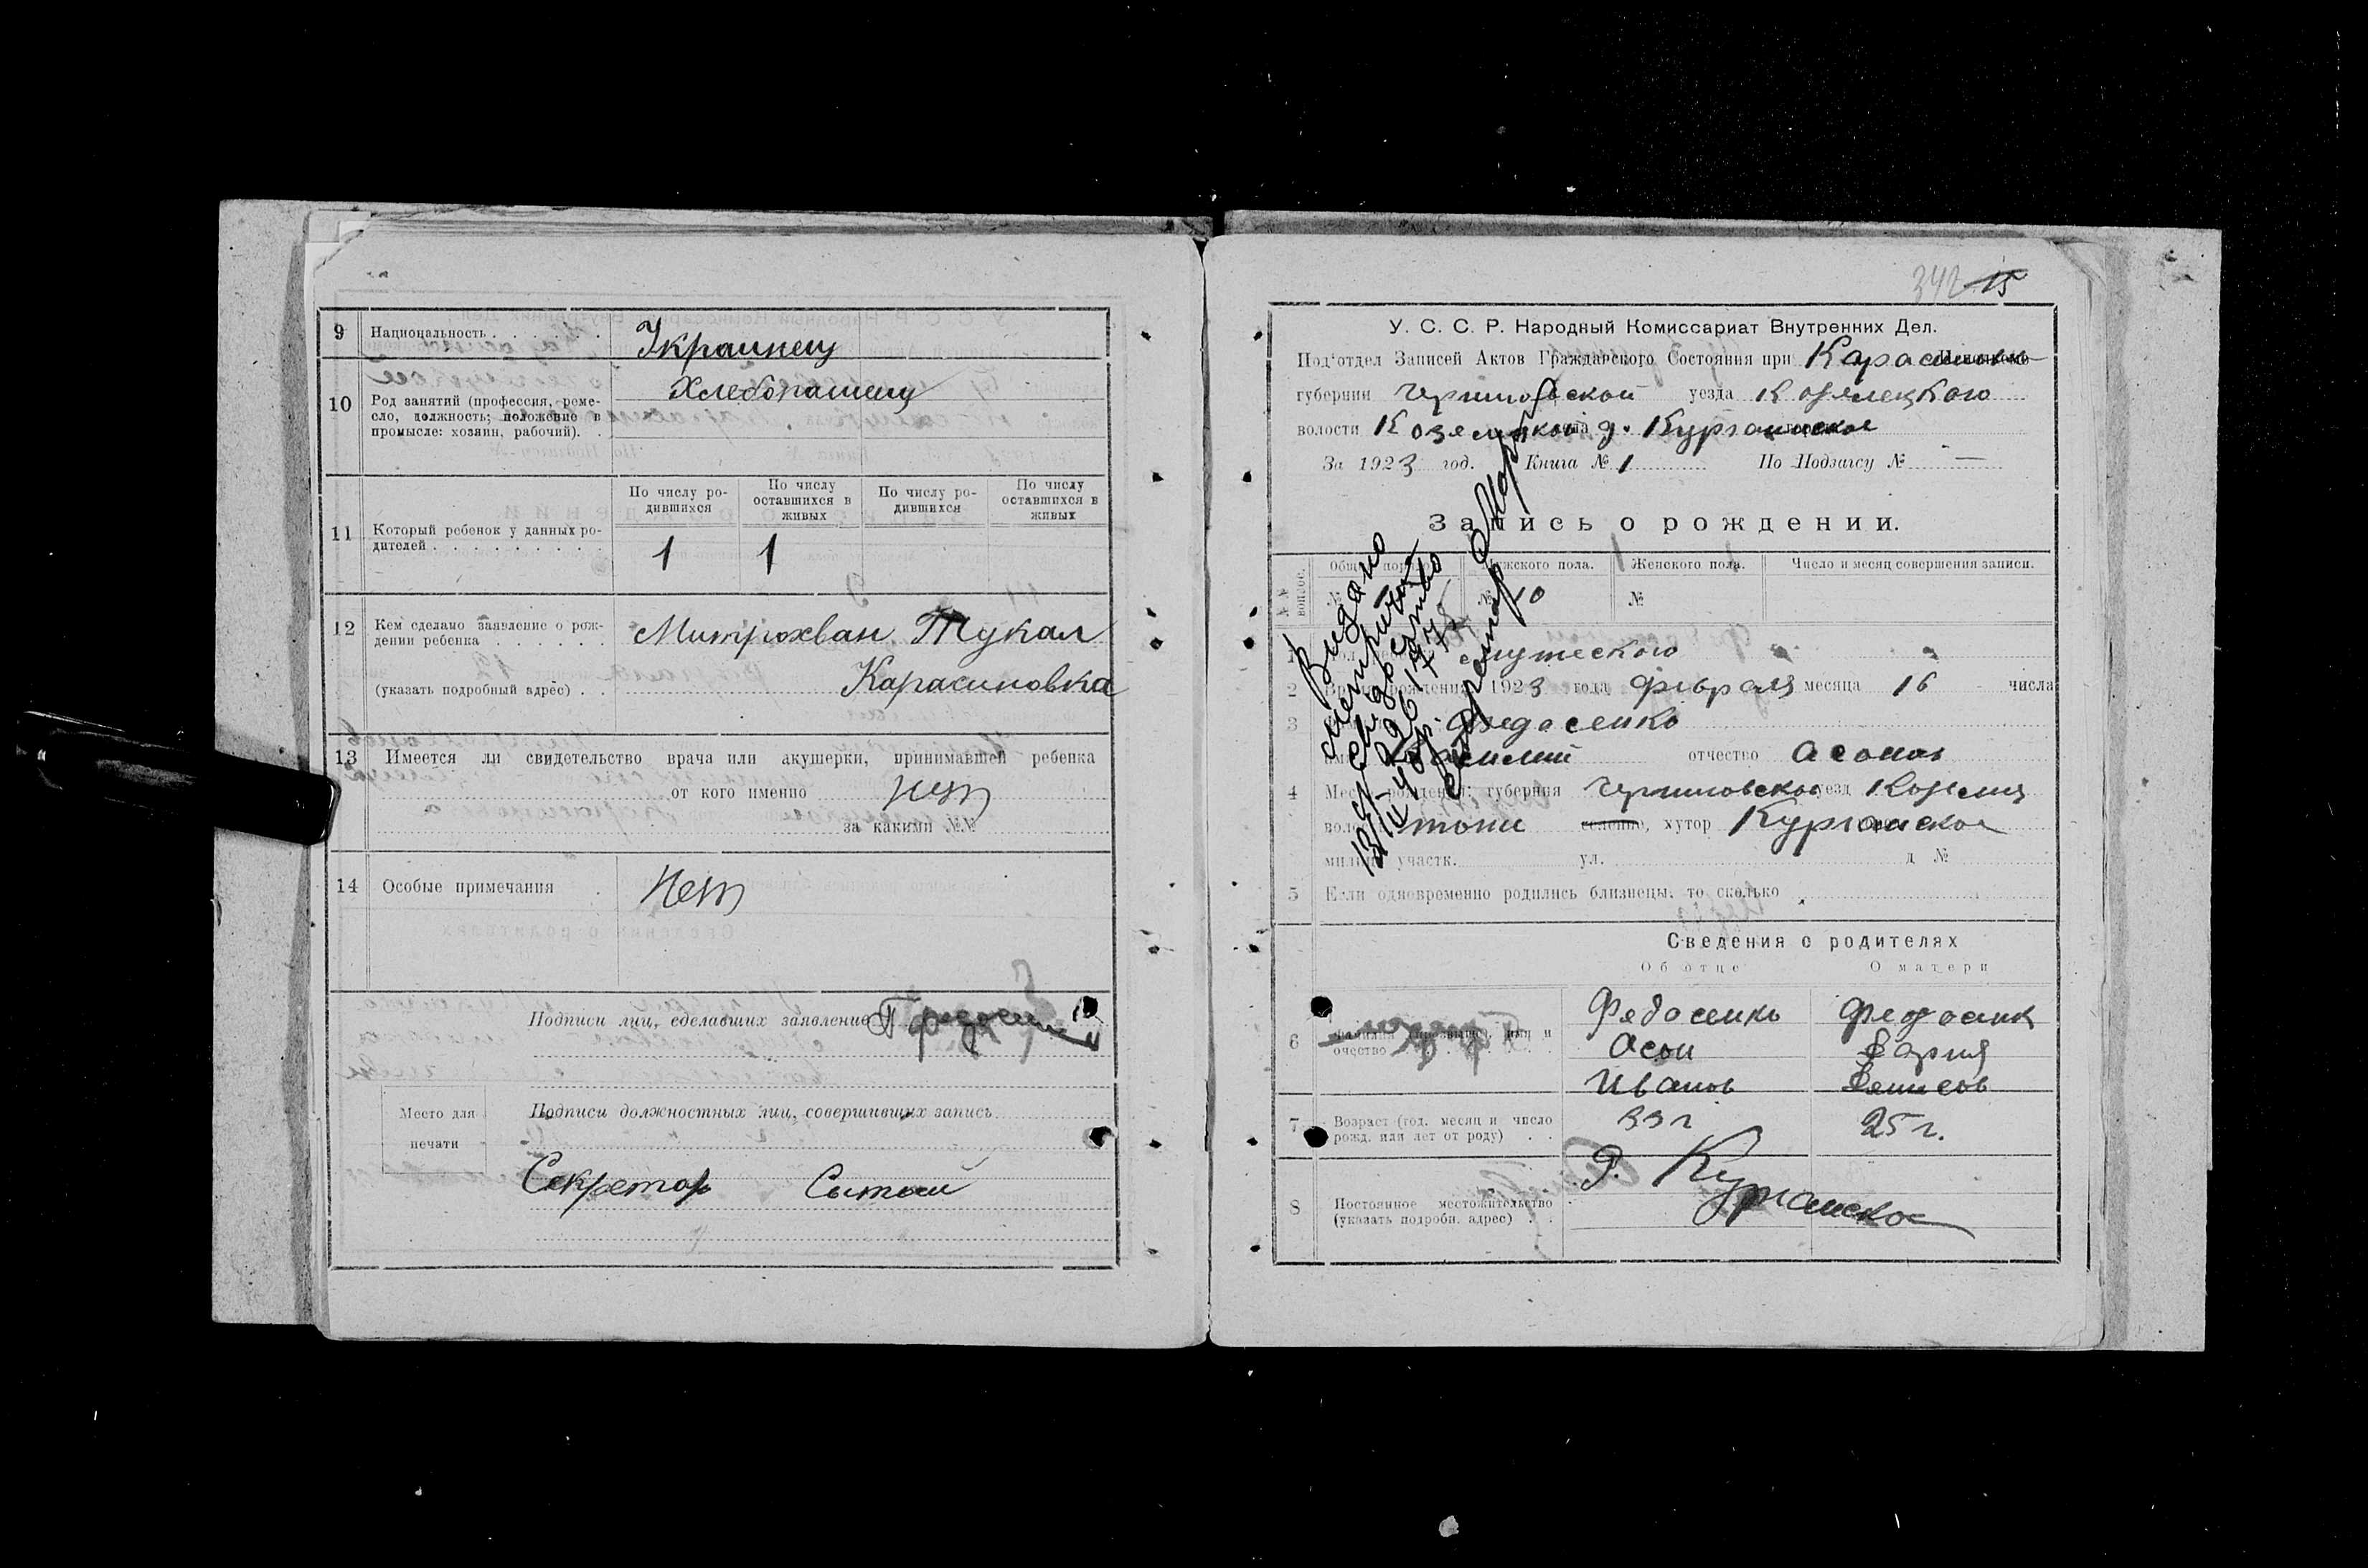 9 Национальность . . . . . . Украинец
10 Род занятий (профессия, реме-
сло, должность; положение в
промысле: хозяин, рабочий). .
Хлебопашец
11 Который ребенок у данных ро-
дителей . . . . . . . . .
По числу ро-
дившихся
По числу
оставшихся в
живых
По числу ро-
дившихся
По числу
оставшихся в
живых
1 1
12 Кем сделано заявление о рож-
дении ребенка . . . . . . Митрохван Тукал
(указать подробный адрес) . . Карасиновка
13 Имеется ли свидетельство врача или акушерки, принимавшей ребенка
от кого именно нет
за какими №№
14 Особые примечания . Нет
Подписи лиц, сделавших заявление
Место для
печати
Подписи должностных лиц, совершивших запись
Секретар Сытый
342 15
У. С. С. Р. Народный Комиссариат Внутренних Дел.
Под'отдел Записей Актов Гражданского Состояния при Карасиновск
губернии Черниговской уезда Козелецкого
волости Козелецкой д. Курганское
За 1923 год. Книга № 1 По Подзагсу № —
Запись о рождении.
№№ вопрос.
Мужского пола. Женского пола. Число и месяц совершения записи.
№ 10 №
1 мужеского
2 Время рождения 1923 года февраля месяца 16 числа
3 Федосенко
имя Василий отчество Асонов
4 Место рождения: губерния Черниговской уезд Козелец
волость тоже селение, хутор Курганское
милиц. участк. ул. д №
5 Если одновременно родились близнецы, то сколько
Видано
метричне
свидоство
Секретар
Сведения о родителях
Об отце О матери
6 Фамилия (прозвище), имя и
отчество . . . .
Федосенко Федосенк
Асон Дария
Иванов Денисов
7 Возраст (год, месяц и число
рожд. или лет от роду) . .
33 г 25 г.
8 Постоянное местожительство
(указать подробн. адрес) . .
Д. Курганское